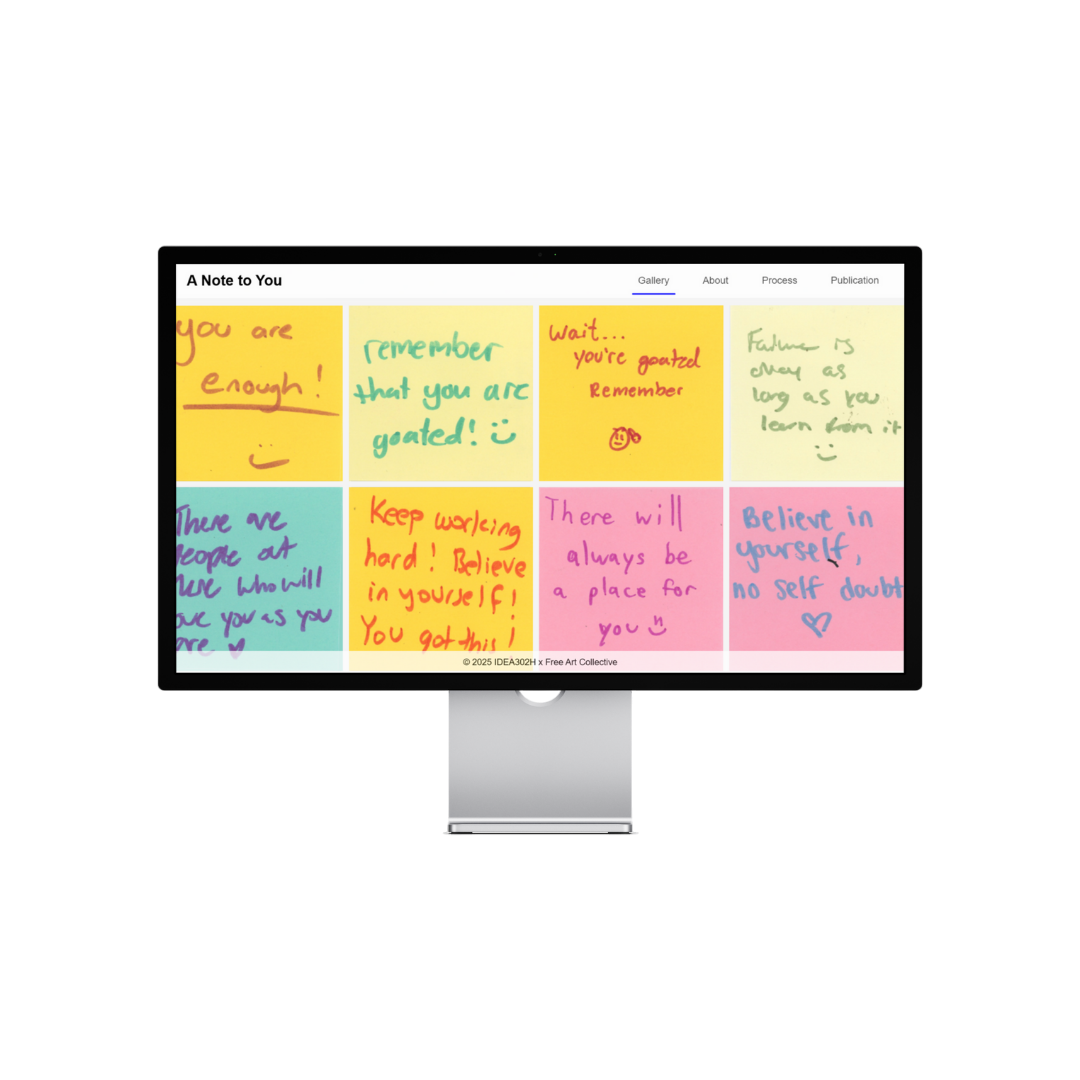 A Note to You
Gallery
About
Process
Publication
you are
enough!
remember
that you are
goated!
Wait...
you're goated
Remember
Failure is
okay as
long as you
learn from it
There are
people out
who will
you as you
Keep working
hard! Believe
in yourself!
You got this!
There will
always be
a place for
you
Believe in
yourself,
no self doubt
© 2025 IDEA302H x Free Art Collective